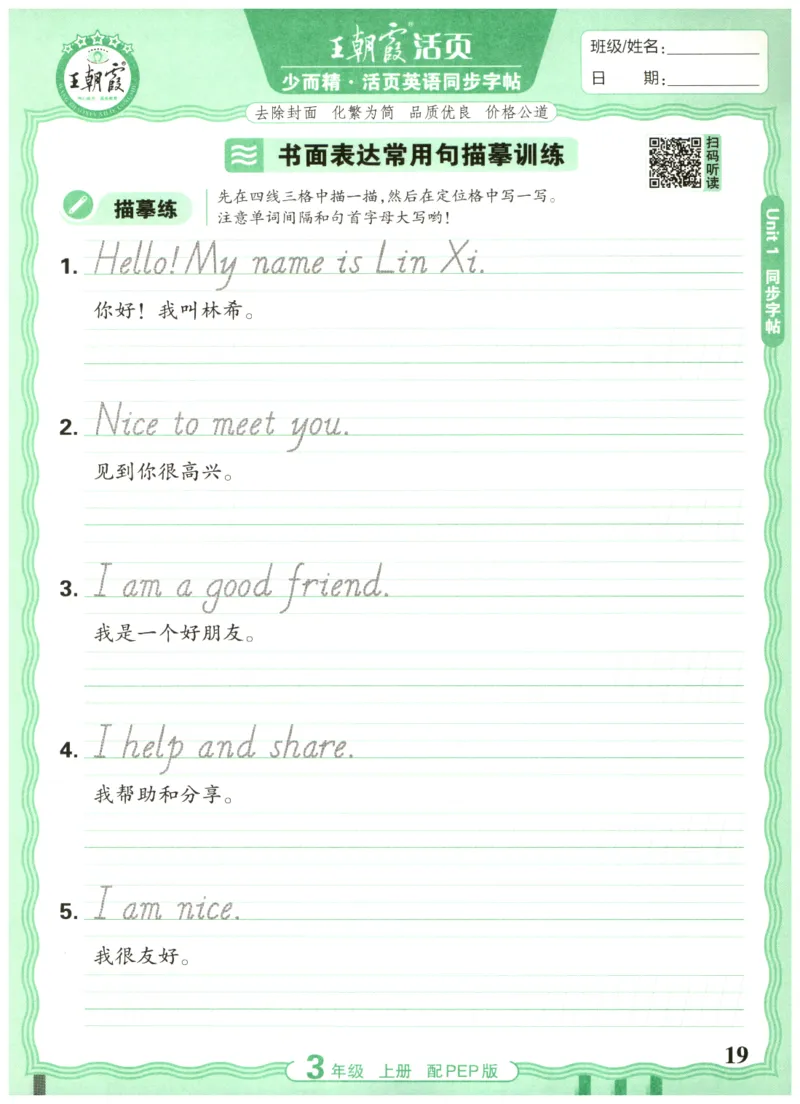 王朝霞
王朝霞®活页
少而精·活页英语同步字帖
班级/姓名:
日 期:
去除封面 化繁为简 品质优良 价格公道
书面表达常用句描摹训练
扫码听读
描摹练
先在四线三格中描一描,然后在定位格中写一写。
注意单词间隔和句首字母大写哟!
Unit 1 同步字帖
1. Hello! My name is Lin Xi.
你好! 我叫林希。
2. Nice to meet you.
见到你很高兴。
3. I am a good friend.
我是一个好朋友。
4. I help and share.
我帮助和分享。
5. I am nice.
我很友好。
19
3年级 上册 配PEP版